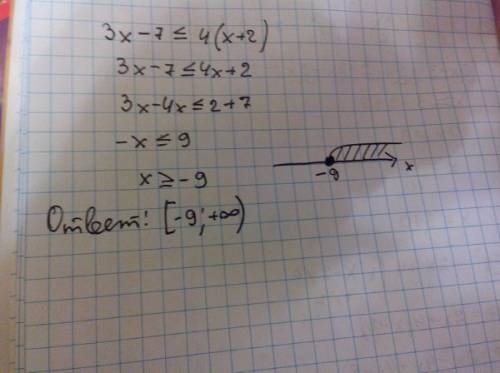 3x-7≤ 4(x+2)
3x-7≤4x+2
3x-4x≤2+7
-x≤9
x≥-9
-9 x
Ответ: [-9;+∞)